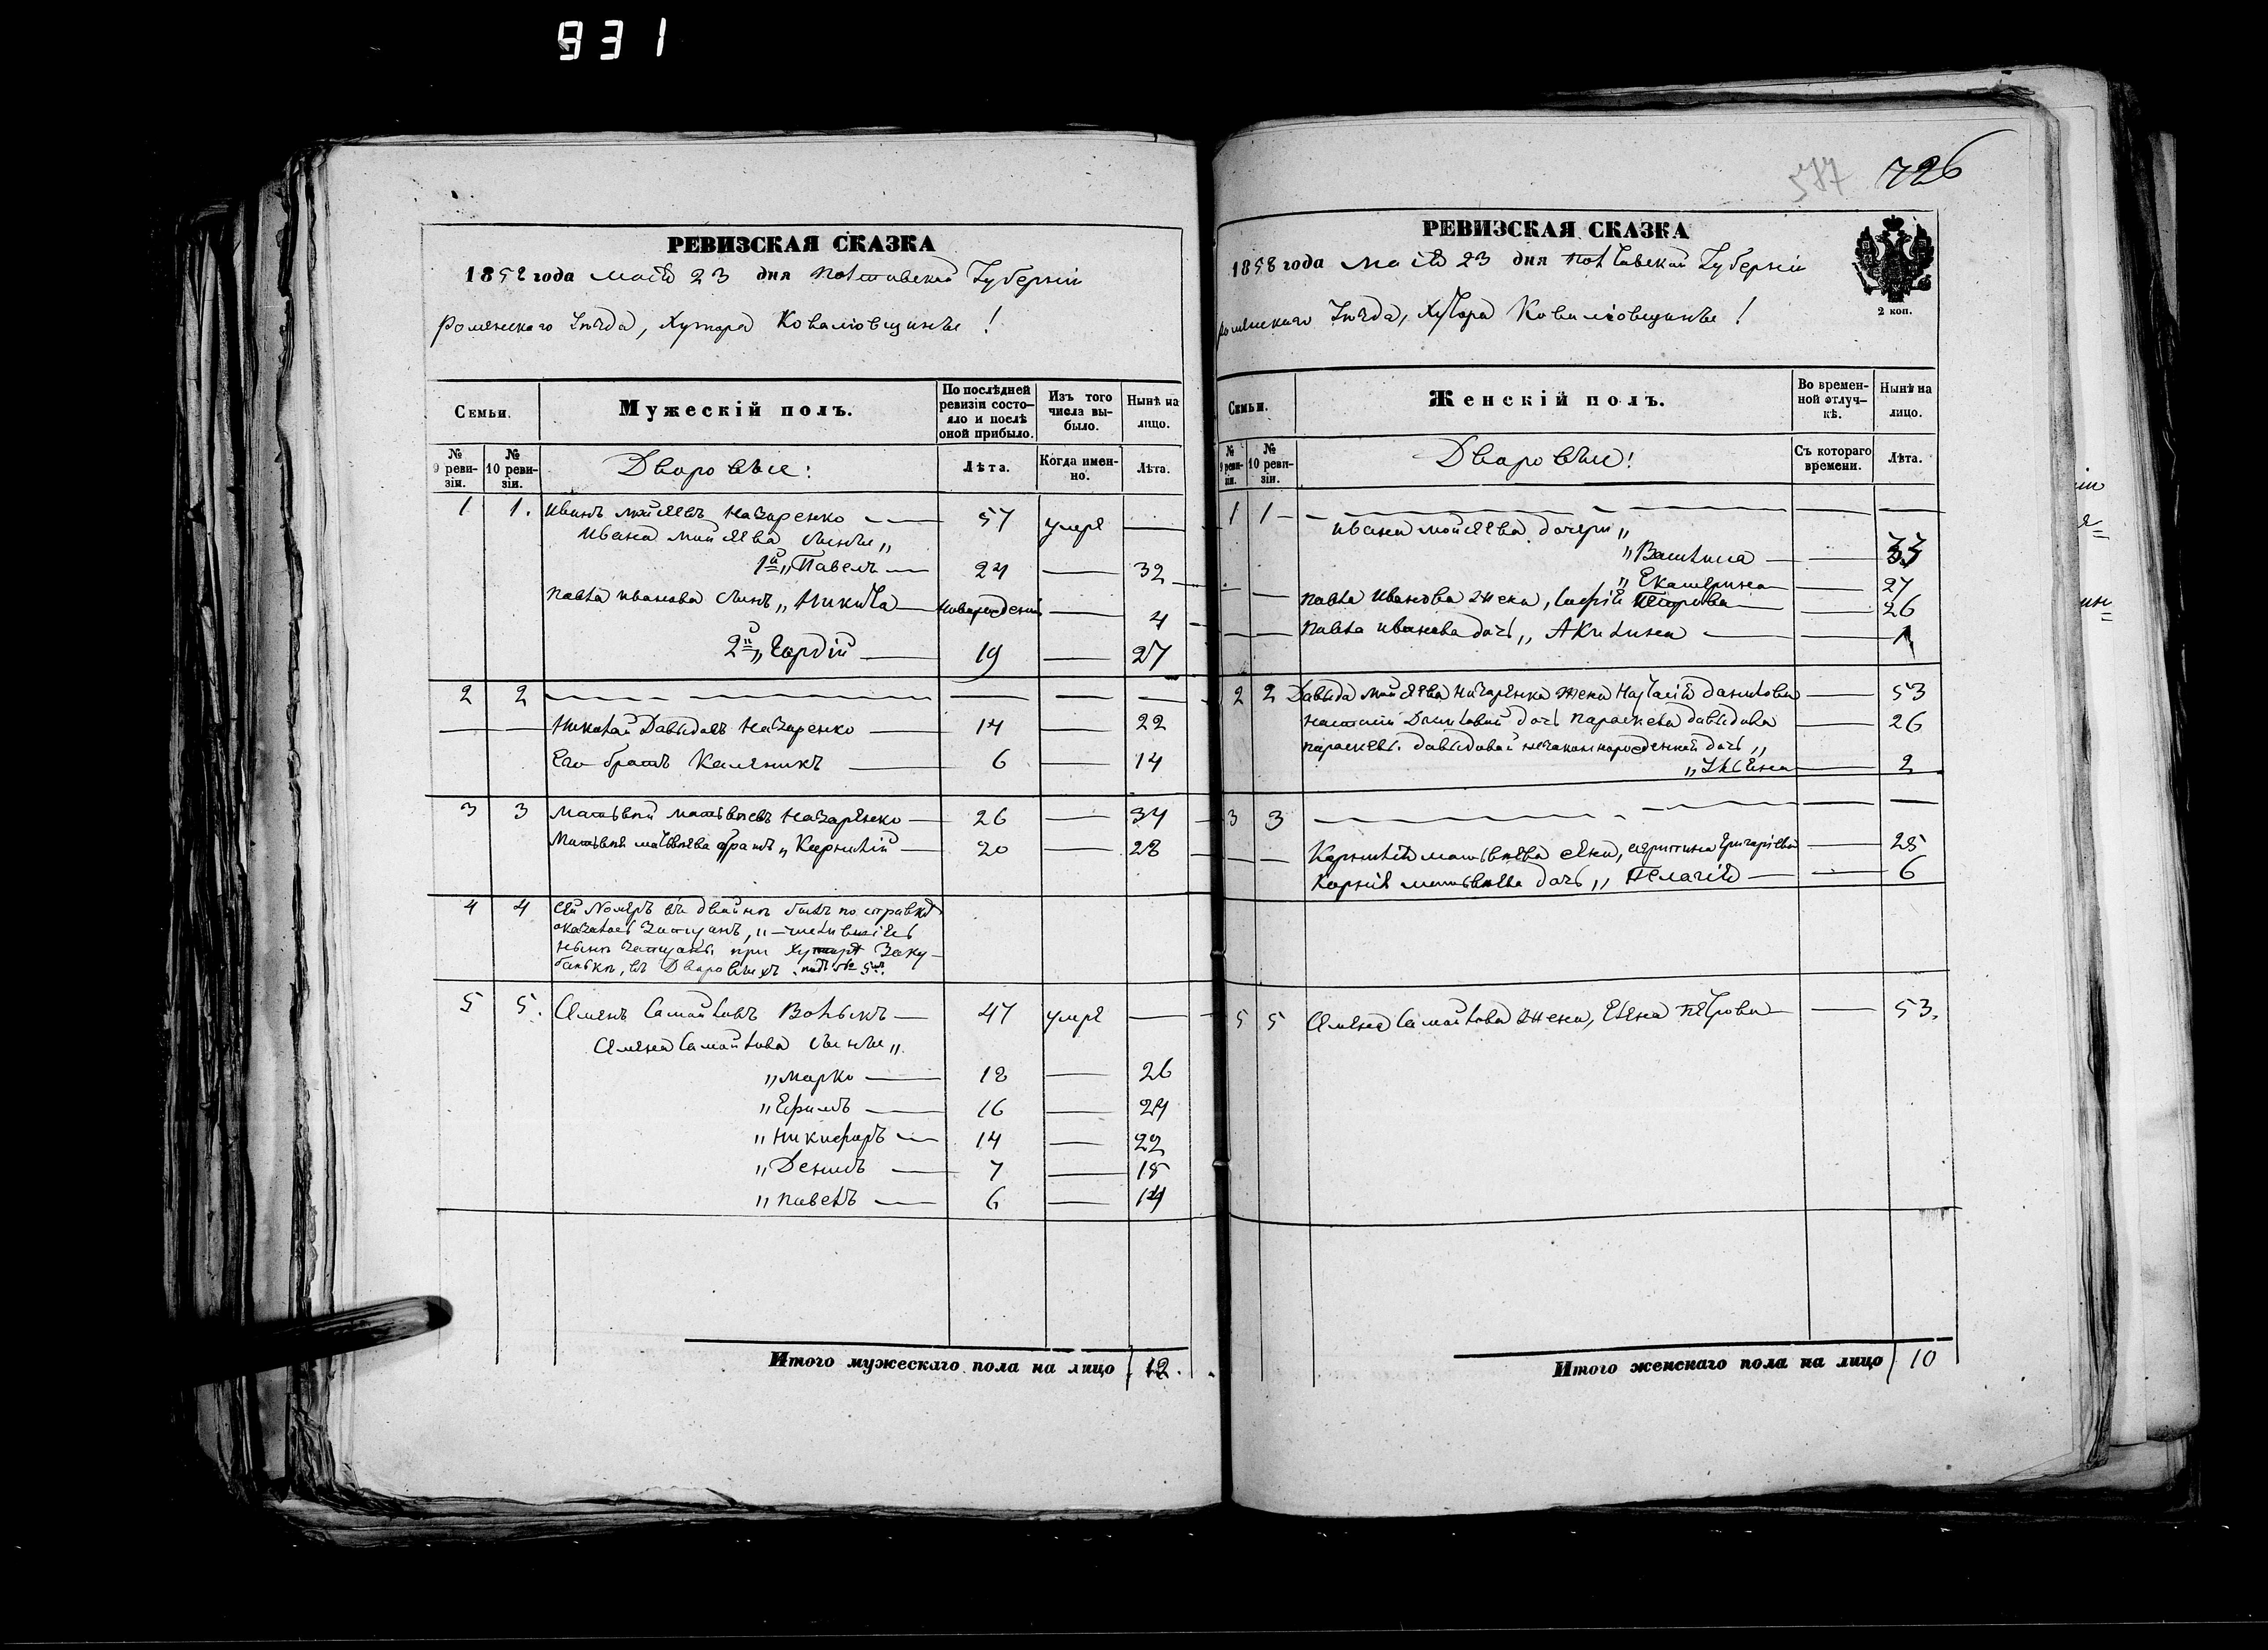 931
577 726
РЕВИЗСКАЯ СКАЗКА
1858 года маія 23 дня Полтавской Губерніи
Роменскаго Уѣзда, Хутора Ковалювщины!
Семьи.
Мужескій полъ.
По послѣдней ревизіи состо-
яло и послѣ
оной прибыло.
Изъ того
числа вы-
было.
Нынѣ на
лицо.
№
9 реви-
зіи.
№
10 реви-
зіи.
Дворовые:
Лѣта.
Когда имен-
но.
Лѣта.
1 1. Иванъ Мойсеевъ Назаренко — 57 умре —
Ивана Мойсеева сыны „
1й „ Павелъ — 24 — 32
Павла Иванова сынъ „ Никита — новорожденный — 4
2й „ Гордій — 19 — 27
2 2 — — — —
— — Николай Давыдовъ Назаренко — 14 — 22
Его братъ Каленикъ — 6 — 14
3 3 Матвѣй Матвѣевъ Назаренко — 26 — 34
Матвѣя Матвѣева братъ „ Корнилій — 20 — 28
4 4 Сей Номеръ
оказалось
нынѣ при Хуторѣ Заку-
баньки, въ Дворовыхъ подъ № 5мъ.
5 5. Семенъ Самойловъ Волыкъ — 47 умре —
Семена Самойлова сыны „
„ Марко — 18 — 26
„ Ефимъ — 16 — 24
„ Никифоръ — 14 — 22
„ Денисъ — 7 — 15
„ Павелъ — 6 — 14
Итого мужескаго пола на лицо 12.
РЕВИЗСКАЯ СКАЗКА
1858 года маія 23 дня Полтавской Губерніи
Роменскаго Уѣзда, Хутора Ковалювщины!
2 коп.
Семьи.
Женскій полъ.
Во времен-
ной отлуч-
кѣ.
Нынѣ на
лицо.
№
9 реви-
зіи.
№
10 реви-
зіи.
Дворовые!
Съ котораго
времени.
Лѣта.
1 1 — — — —
Ивана Мойсеева дочери „
„ Василиса — — 33
„ Екатерина — — 27
— — Павла Иванова жена, Софія Петрова — — 26
— — Павла Иванова дочь „ Акилина — — 1
2 2 Давыда Мойсеева Назаренка жена Наталія Данилова — 53
Наталіи Даниловой дочь Параскева Давыдова — 26
Параскевы Давыдовой незаконнорожденная дочь „
„ — 2
3 3 — — —
— — Корнилія Матвѣева жена, Григоріева — 25
Корнія Матвѣева дочь „ Пелагія — — 6
5 5 Семена Самойлова жена, Елена Петрова — — 53.
Итого женскаго пола на лицо 10